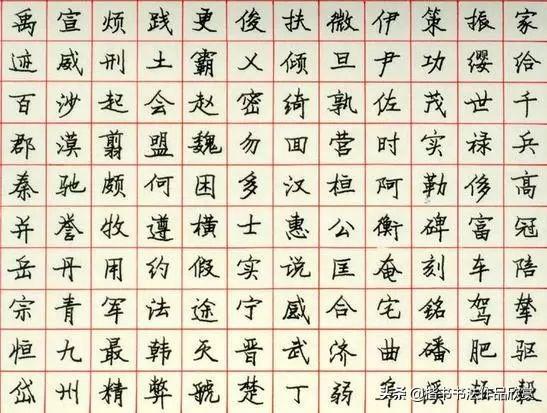 家给千兵高冠陪辇驱毂
振缨世禄侈富车驾肥轻
策功茂实勒碑刻铭磻溪
伊尹佐时阿衡奄宅曲阜
微旦孰营桓公匡合济弱
扶倾绮回汉惠说感武丁
俊乂密勿多士实宁晋楚
更霸赵魏困横假途灭虢
践土会盟何遵约法韩弊
烦刑起翦颇牧用军最精
宣威沙漠驰誉丹青九州
禹迹百郡秦并岳宗恒岱
头条 @楷书书法作品欣赏